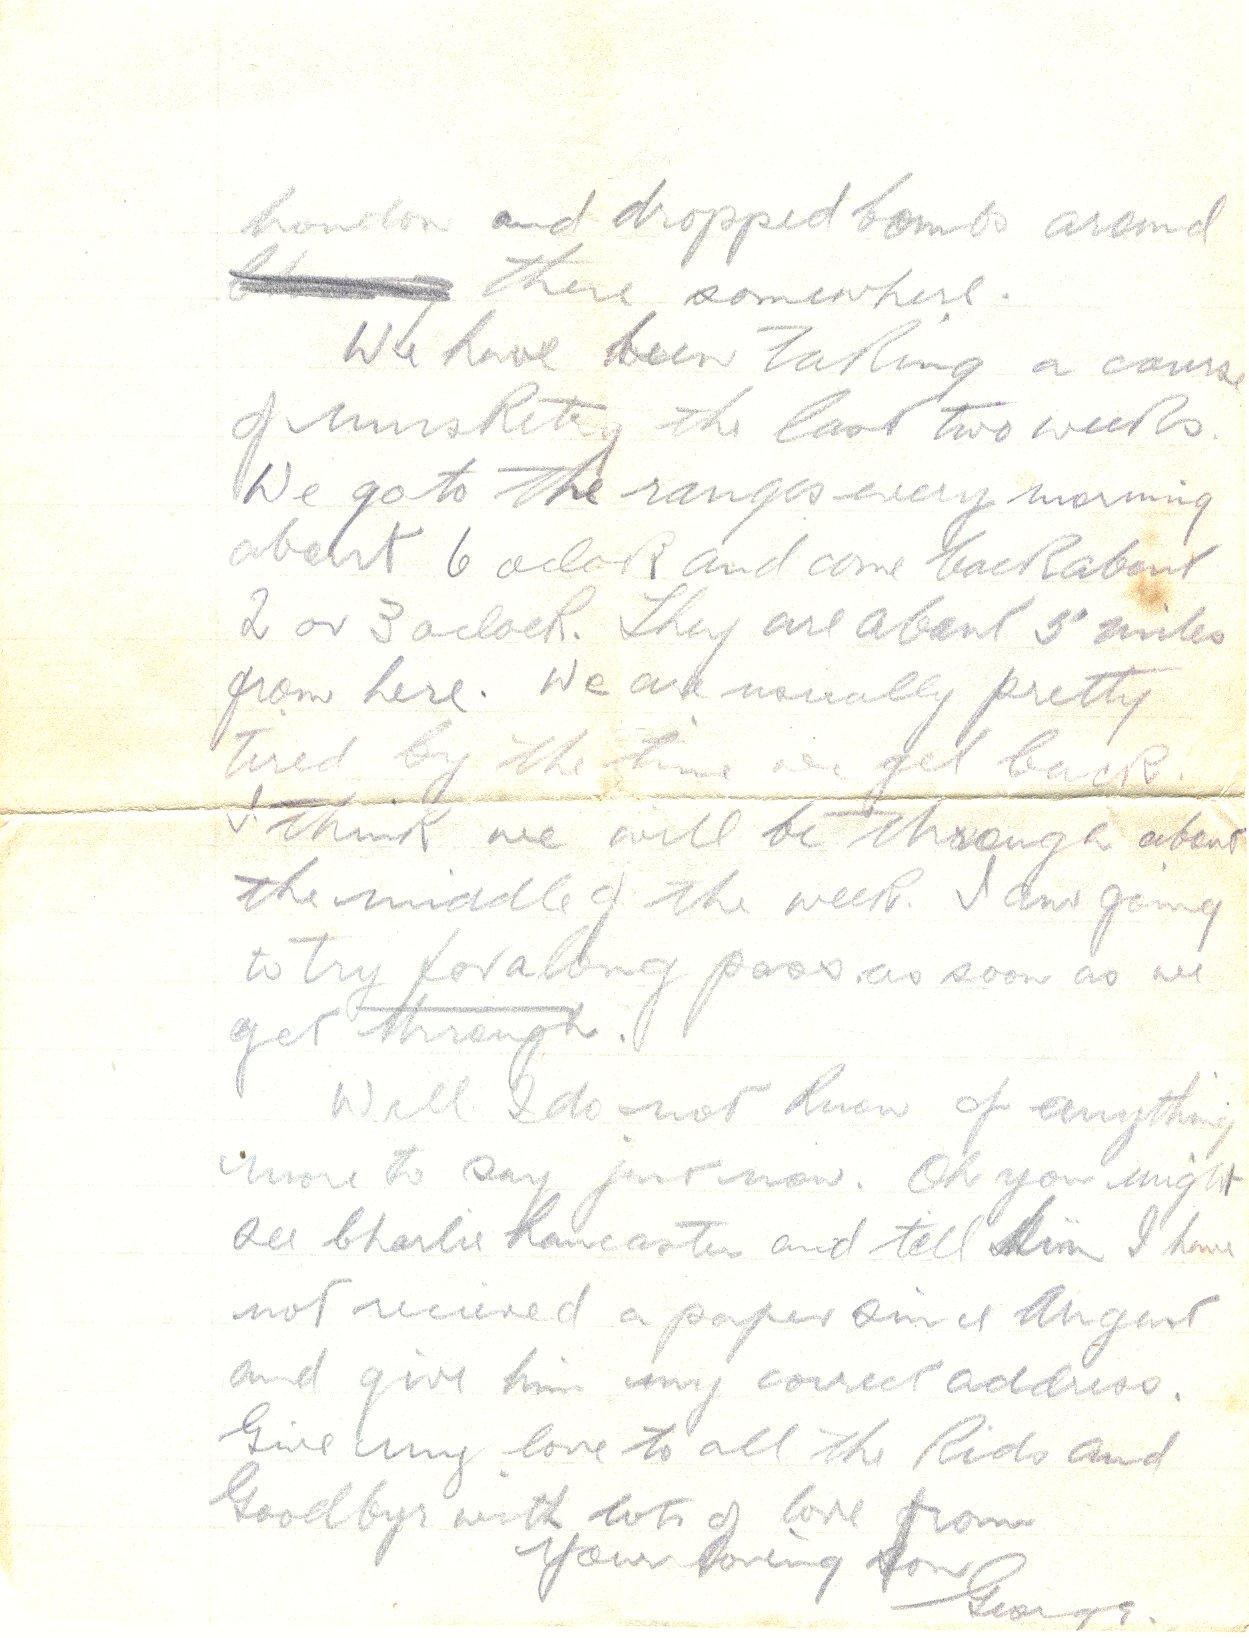 London and dropped bombs around
there somewhere.
We have been taking a course
of musketry the last two weeks.
We go to the ranges every morning
about 6 oclock and come back about
2 or 3 oclock. They are about 5 miles
from here. We are usually pretty
tired by the time we get back.
I think we will be through about
the middle of the week. I am going
to try for a long pass as soon as we
get through.
Well I do not know of anything
more to say just now. Oh you might
see Charlie Lancaster and tell him I have
not recieved a paper since August
and give him my correct address.
Give my love to all the kids and
Goodbye with lots of love from
your loving son
George.